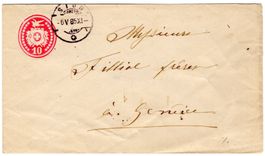 10
SION
-6 V 85 XI-
Messieurs
Filliol frères
à Genève